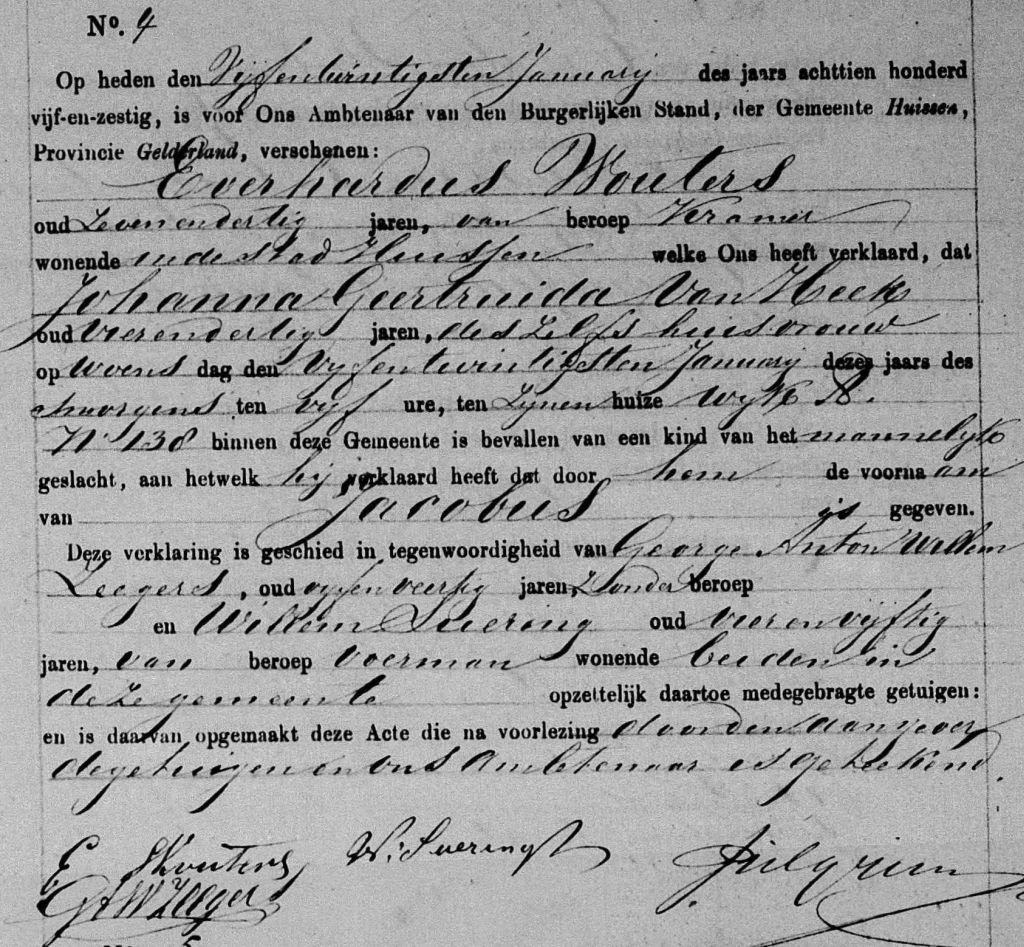 No. 4
Op heden den Vijfentwintigsten January des jaars achttien honderd
vijf-en-zestig, is voor Ons Ambtenaar van den Burgerlijken Stand, der Gemeente Huissen,
Provincie Gelderland, verschenen:
Everhardus Wouters
oud Zevenendertig jaren, van beroep Kramer
wonende in de stad Huissen welke Ons heeft verklaard, dat
Johanna Geertruida van Heek
oud vierendertig jaren, des zelfs huisvrouw
op woens dag den Vyfentwintigsten January dezes jaars des
smorgens ten vyf ure, ten zynen huize wyk B.
No 138 binnen deze Gemeente is bevallen van een kind van het mannelyk
geslacht, aan hetwelk hij verklaard heeft dat door hem de voornaam
van Jacobus is gegeven.
Deze verklaring is geschied in tegenwoordigheid van George Anton Willem
Zeegers, oud vyfenveertig jaren, Zonder beroep
en Willem Suering oud vierenvyftig
jaren, van beroep voerman wonende beiden in
deze gemeente opzettelijk daartoe medegebragte getuigen:
en is daarvan opgemaakt deze Acte die na voorlezing door den aangever
de getuigen en ons Ambtenaar is geteekend.
E Wouters W. Suering Pilgrim
GAW Zeegers